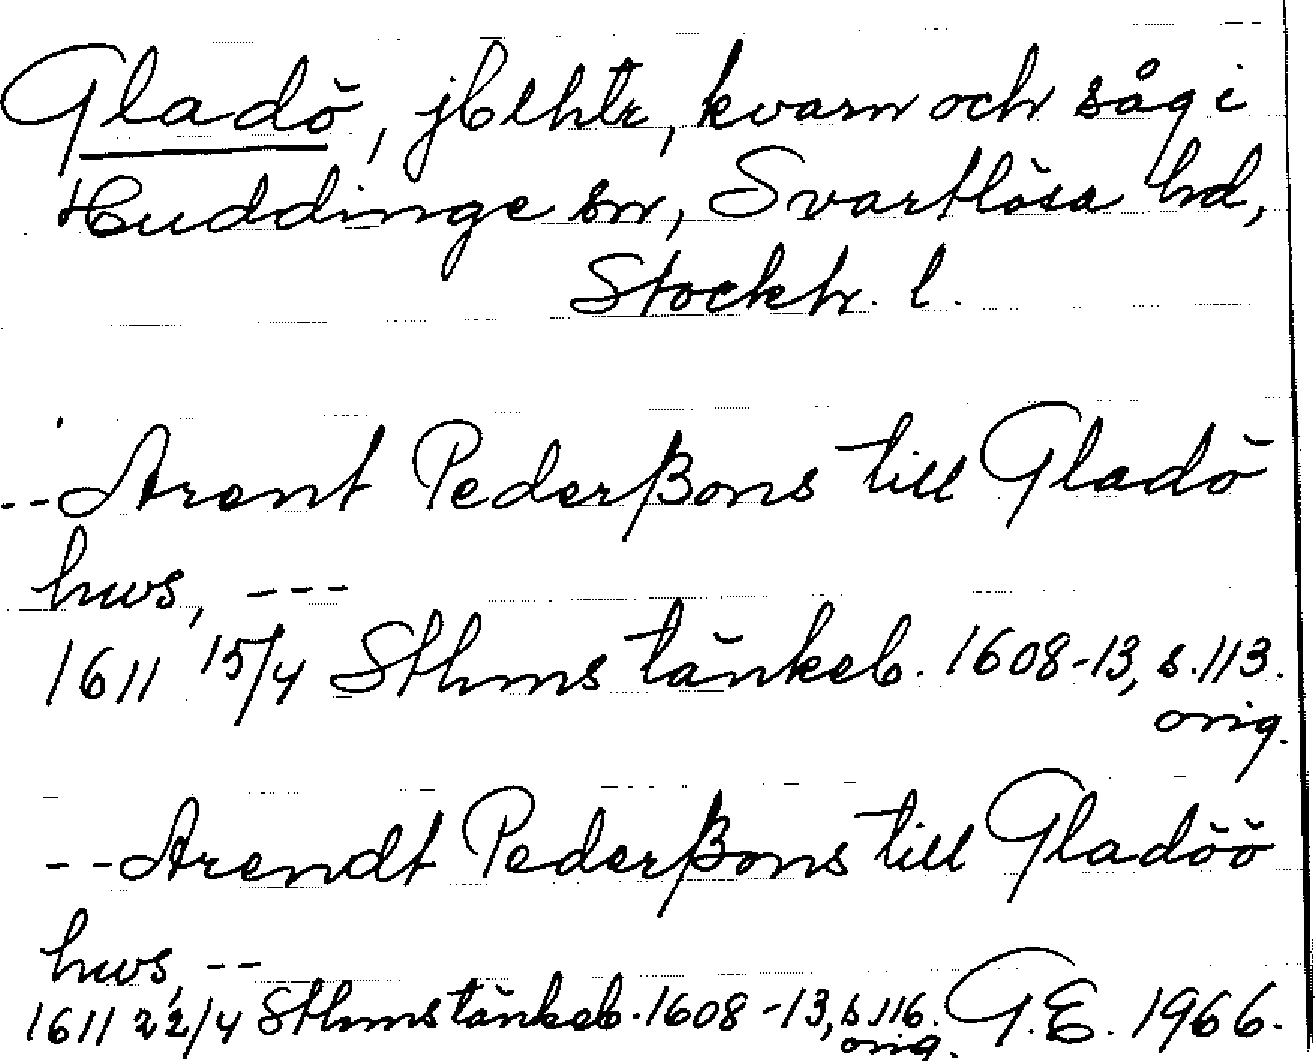 Gladö, jb lhtr, kvarn och såg i
Huddinge sn, Svartlösa hd,
Stockh. l.
--Arent Pederßons till Gladö
hws, ---
1611 15/4 Sthms tänkeb. 1608-13, s. 113.
orig.
--Arendt Pederßons till Gladöö
hws, --
1611 22/4 Sthms tänkeb. 1608-13, s. 116. G.E. 1966.
orig.